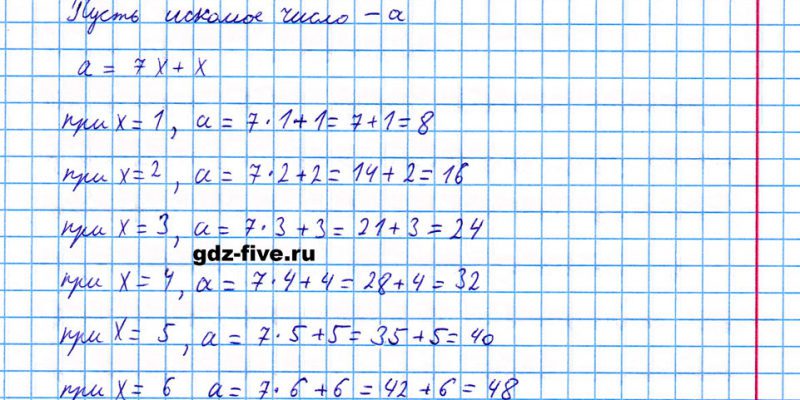 Пусть искомое число – а
а = 7х + х
при х = 1, а = 7 · 1 + 1 = 7 + 1 = 8
при х = 2, а = 7 · 2 + 2 = 14 + 2 = 16
при х = 3, а = 7 · 3 + 3 = 21 + 3 = 24
gdz-five.ru
при х = 4, а = 7 · 4 + 4 = 28 + 4 = 32
при х = 5, а = 7 · 5 + 5 = 35 + 5 = 40
при х = 6 а = 7 · 6 + 6 = 42 + 6 = 48